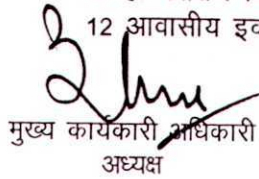 12 आवासीय
मुख्य कार्यकारी अधिकारी
अध्यक्ष